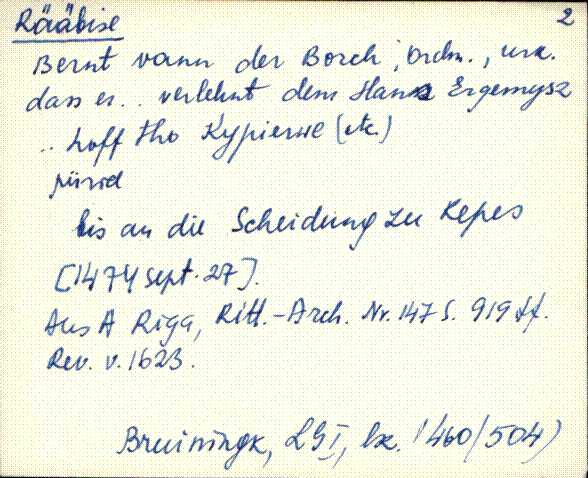 Rääbise 2
Bernt vann der Borch, Ordm., urk.
dass er.. verlehnt dem Hans Ergemysz
.. hoff tho Kypierwe (etc.)
piirid
bis an die Scheidung zu Kepes
[1474 Sept. 27].
Aus A Riga, Ritt.-Arch. Nr. 147 S. 919 ff.
Rev. v. 1623.
Bruiningk, LG I, lk. 460/504)